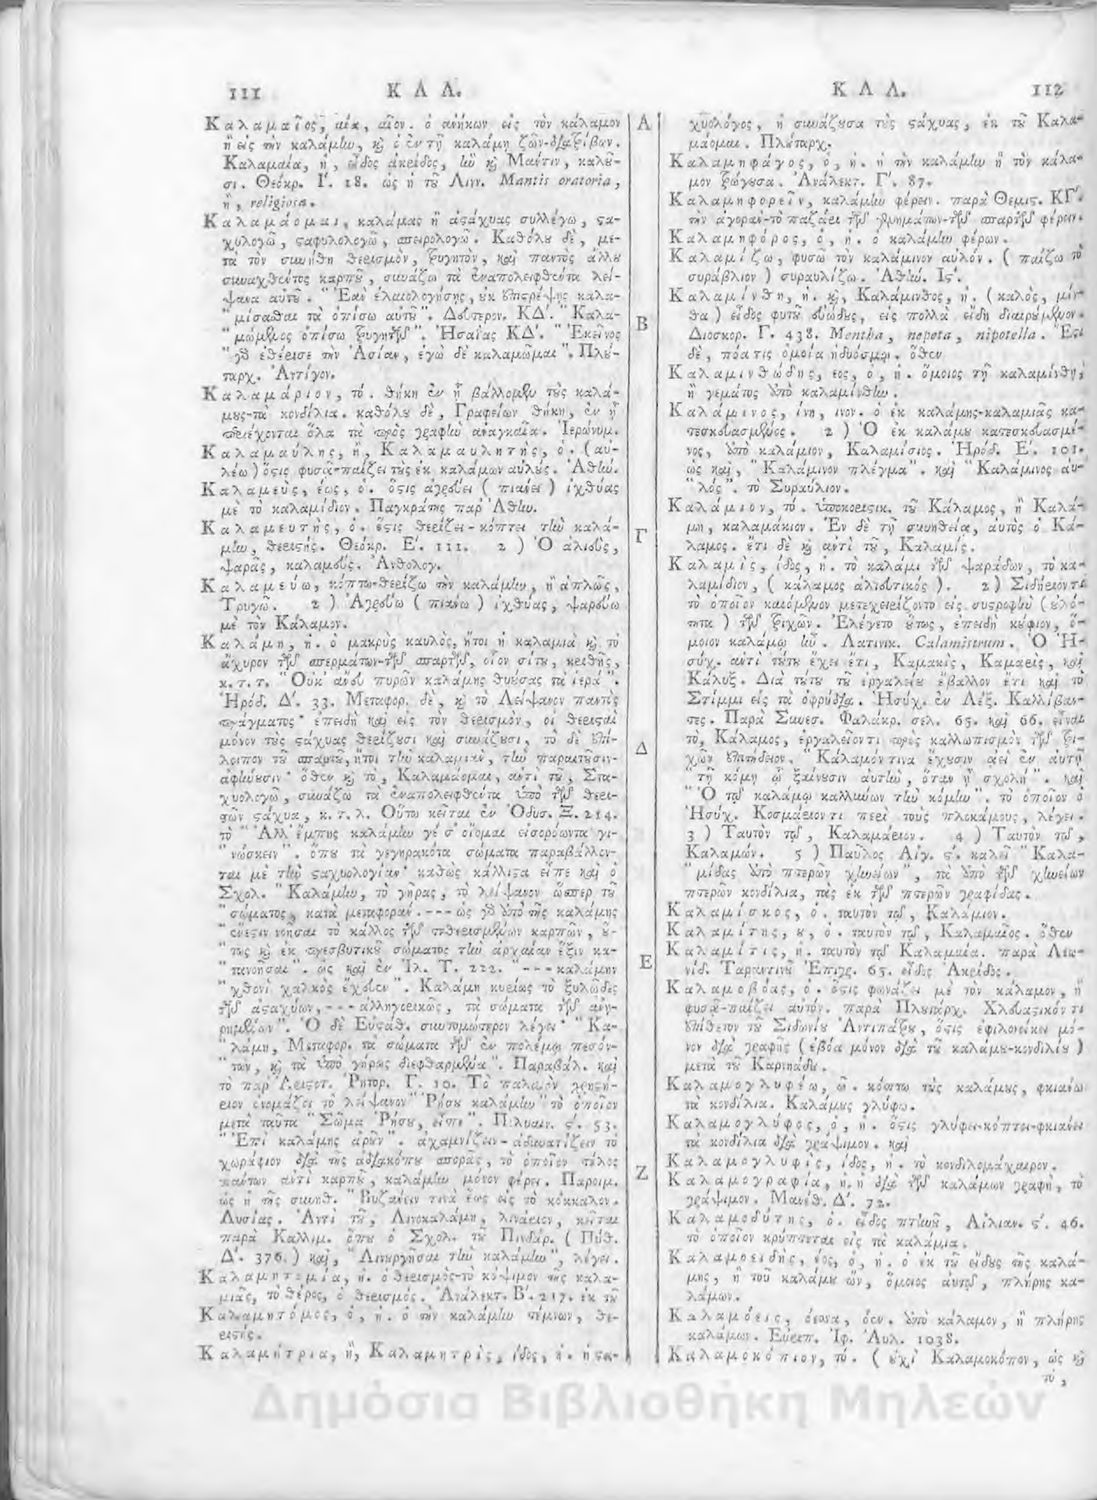 111 ΚΑΛ.
Καλαμαῖος, αία, αῖον. ὁ ἀνήκων εἰς τὸν κάλαμον
ἢ εἰς τὴν καλάμην, καὶ ὁ ἐν τῇ καλάμῃ ζῶν-διατρίβων.
Καλαμαία, ἡ, εἶδος ἀκρίδος, ἣν καὶ Μαῦτιν, καλοῦ-
σι. Θεόκρ. Ι΄. 18. ὡς ἡ τοῦ Λινν. Mantis oratoria,
ἢ, religiosa.
Καλαμάομαι, καλάμας ἢ ἀστάχυας συλλέγω, στα-
χυλογῶ, σταφυλολογῶ, σπειρολογῶ. Καθόλου δὲ, με-
τὰ τὸν συνήθη θερισμὸν, τρυγητὸν, καὶ παντὸς ἄλλου
συναχθέντος καρποῦ, συνάζω τὰ ἐναπολειφθέντα λεί-
ψανα αὐτοῦ. "Ἐὰν ἐλαιολογήσῃς, οὐκ ἐπιστρέψῃς καλα-
"μίσασθαι τὰ ὀπίσω αὐτοῦ". Δευτερον. ΚΔ΄. "Καλα-
"μώμενος ὀπίσω τρυγητῶν". Ἡσαΐας ΚΔ΄. "Ἐκεῖνος
"γὰρ ἐθέρισε τὴν Ἀσίαν, ἐγὼ δὲ καλαμῶμαι". Πλού-
ταρχ. Ἀντίγον.
Καλαμάριον, τό. θήκη ἐν ᾗ βάλλομεν τοὺς καλά-
μους-τὰ κονδίλια. καθόλου δὲ, Γραφείων θήκη, ἐν ᾗ
περιέχονται ὅλα τὰ πρὸς γραφὴν ἀναγκαῖα. Ἱερώνυμ.
Καλαμαύλης, ἢ, Καλαμαυλητὴς, ὁ. (αὐ-
λέω) ὅστις φυσᾷ-παίζει τοὺς ἐκ καλάμων αὐλούς. Ἀθήν.
Καλαμεὺς, έως, ὁ. ὅστις ἀγρεύει (πιάνει) ἰχθύας
μὲ τὸ καλαμίδιον. Παγκράτης παρ' Ἀθην.
Καλαμευτὴς, ὁ. ὅστις θερίζει-κόπτει τὴν καλά-
μην, θεριστής. Θεόκρ. Ε΄. 111. 2) Ὁ ἁλιεὺς,
ψαρᾶς, καλαμεύς. Ἀνθολογ.
Καλαμεύω, κόπτω-θερίζω τὴν καλάμην, ἢ ἁπλῶς,
Τρυγῶ. 2) Ἀγρεύω (πιάνω) ἰχθύας, ψαρεύω
μὲ τὸν Κάλαμον.
Καλάμη, ἡ. ὁ μακρὺς καυλὸς, ἤτοι ἡ καλαμιὰ καὶ τὸ
ἄχυρον τῶν σπερμάτων-τῶν σπαρτῶν, οἷον σίτου, κριθῆς,
κ. τ. τ. "Οὐκ ἄνευ πυρῶν καλάμης θυέσας τὰ ἱερά".
Ἡρόδ. Δ΄. 33. Μεταφορ. δὲ, καὶ τὸ Λείψανον παντὸς
πράγματος· ἐπειδὴ καὶ εἰς τὸν θερισμὸν, οἱ θερισταὶ
μόνον τοὺς στάχυας θερίζουσι καὶ συνάζουσι, τὸ δὲ ἐπί-
λοιπον τοῦ σπαρτοῦ, ἤτοι τὴν καλαμιὰν, τὴν παραιτοῦσιν-
ἀφήνουσιν· ὅθεν καὶ τὸ, Καλαμάομαι, ἀντὶ τοῦ, Στα-
χυολογῶ, συνάζω τὰ ἐναπολειφθέντα ὑπὸ τῶν θερι-
στῶν στάχυα, κ. τ. λ. Οὕτω κεῖται ἐν Ὀδυσ. Ξ. 214.
τὸ "Ἀλλ' ἔμπης καλάμην γέ σ' οἴομαι εἰσορόωντα γι-
"νώσκειν". ὅπου τὰ γεγηρακότα σώματα παραβάλλον-
ται μὲ τὴν σταχυολογίαν· καθὼς κάλλιστα εἶπε καὶ ὁ
Σχολ. "Καλάμην, τὸ γῆρας, τὸ λείψανον ὥσπερ τοῦ
"σώματος, κατὰ μεταφοράν. --- ὡς γὰρ ἀπὸ τῆς καλάμης
"ἔνεστιν νοῆσαι τὸ κάλλος τῶν τεθερισμένων καρπῶν, οὕ-
"τως καὶ ἐκ πρεσβυτικοῦ σώματος τὴν ἀρχαίαν ἕξιν κα-
"τανοῆσαι". ὡς καὶ ἐν Ἰλ. Τ. 222. "--- καλάμην
"χθονὶ χαλκὸς ἔχευεν". Καλάμη κυρίως τὸ ξυλῶδες
τῶν ἀσταχύων, --- ἀλληγορικῶς, τὰ σώματα τῶν ἀνῃ-
ρημένων". Ὁ δὲ Εὐσταθ. συντομώτερον λέγει· "Κα-
"λάμη, Μεταφορ. τὰ σώματα τῶν ἐν πολέμῳ πεσόν-
"των, καὶ τὰ ὑπὸ γήρως διεφθαρμένα". Παραβάλ. καὶ
τὸ παρ' Ἀριστοτ. Ῥητορ. Γ. 10.
"Ἐπὶ καλάμης ἀροῦν". ἀχαμνίζειν-ἀδυνατίζειν τὸ
χωράφιον διὰ τῆς ἀδιακόπου σπορᾶς, τὸ ὁποῖον τέλος
πάντων ἀντὶ καρποῦ, καλάμην μόνον φέρει. Παροιμ.
Λυσίας. Ἀντὶ τοῦ, Λινοκαλάμη, λινάριον, κεῖται
παρὰ Καλλιμ. ὅπου ὁ Σχολ. τοῦ Πινδάρ. (Πύθ.
Δ΄. 376.) καὶ, "Λινεργῆσαι τὴν καλάμην", λέγει.
Καλαμητομία, ἡ. ὁ θερισμὸς-τὸ κόψιμον τῆς καλα-
μιᾶς, τὸ θέρος, ὁ θερισμός. Ἀνάλεκτ. Β΄. 217. ἐκ τοῦ
Καλαμητόμος, ὁ, ἡ. ὁ τὴν καλάμην τέμνων, θε-
ριστής.
Καλαμήτρια, ἡ, Καλαμητρὶς, ίδος, ἡ. ἡ στα-
Α
Β
Γ
Δ
Ε
Ζ
ΚΑΛ. 112
χυολόγος, ἡ συνάζουσα τοὺς στάχυας, ἐκ τοῦ Καλα-
μάομαι. Πλούταρχ.
Καλαμηφάγος, ὁ, ἡ. ἡ τὴν καλάμην ἢ τὸν κάλα-
μον τρώγουσα. Ἀνάλεκτ. Γ΄. 87.
Καλαμηφορεῖν, καλάμην φέρειν. παρὰ Θεμιστ. ΚΓ΄.
Καλαμηφόρος, ὁ, ἡ. ὁ καλάμην φέρων.
Καλαμίζω, φυσῶ τὸν καλάμινον αὐλόν. (παίζω τὸ
συράβλιον) συραυλίζω. Ἀθήν. Ις΄.
Καλαμίνθη, ἡ. καὶ, Καλάμινθος, ἡ. (καλὸς, μίν-
θα) εἶδος φυτοῦ εὐώδους, εἰς πολλὰ εἴδη διαιρούμενον.
Διοσκορ. Γ. 438. Mentha, nepeta, nipotella. Ἔστι
δὲ, πόα τις ὁμοία ἡδυόσμῳ. ὅθεν
Καλαμινθώδης, εος, ὁ, ἡ. ὅμοιος τῇ καλαμίνθῃ,
ἢ γεμάτος ἀπὸ καλαμίνθην.
Καλάμινος, ίνη, ινον. ὁ ἐκ καλάμης-καλαμιᾶς κα-
τεσκευασμένος. 2) Ὁ ἐκ καλάμου κατεσκευασμέ-
νος, ἀπὸ καλάμιον, Καλαμίσιος. Ἡρόδ. Ε΄. 101.
ὡς καὶ, "Καλάμινον πλέγμα". καὶ "Καλάμινος αὐ-
"λός". τὸ Συραύλιον.
Καλάμιον, τό. ὑποκοριστικ. τοῦ Κάλαμος, ἢ Καλά-
μη, καλαμάκιον. Ἐν δὲ τῇ συνηθείᾳ, αὐτὸς ὁ Κά-
λαμος. ἔτι δὲ καὶ ἀντὶ τοῦ, Καλαμίς.
Καλαμὶς, ίδος, ἡ. τὸ καλάμι τῶν ψαράδων, τὸ κα-
λαμίδιον, (κάλαμος ἁλιευτικός). 2) Σιδήριόν τι
τὸ ὁποῖον καιόμενον μετεχειρίζοντο εἰς συστροφὴν (οὐλό-
τητα) τῶν τριχῶν. Ἐλέγετο οὕτως, ἐπειδὴ κούφιον, ὅ-
μοιον καλάμῳ ἦν. Λατινικ. Calamistrum. Ὁ Ἡ-
σύχ. ἀντὶ τούτου ἔχει ἔτι, Καμακίς, Καμαεις, καὶ
Κάλυξ. Διὰ τούτου τοῦ ἐργαλείου ἔβαλλον ἔτι καὶ τὸ
Στίμμι εἰς τὰ ὀφρύδια. Ἡσύχ. ἐν Λέξ. Καλλιβαν-
τες. Παρὰ Συνεσ. Φαλάκρ. σελ. 65. καὶ 66. εἶναι
τὸ, Κάλαμος, ἐργαλεῖόν τι πρὸς καλλωπισμὸν τῶν τρι-
χῶν ἐπιτήδειον. "Καλαμόν τινα ἔχουσιν ἀεὶ ἐν αὐτῇ
"τῇ κόμῃ ᾧ ξαίνουσιν αὐτὴν, ὅταν ᾖ σχολή". καὶ
"Ὁ τῷ καλάμῳ καλλύνων τὴν κόμην". τὸ ὁποῖον ὁ
Ἡσύχ. Κοσμάριόν τι περὶ τοὺς πλοκάμους, λέγει.
3) Ταυτὸν τῷ, Καλαμάριον. 4) Ταυτὸν τῷ,
Καλαμών. 5) Παῦλος Αἰγ. ς΄. καλεῖ "Καλα-
"μίδας ἀπὸ πτερῶν χηνείων", τὰ ἀπὸ τῶν χηνείων
πτερῶν κονδίλια, τὰς ἐκ τῶν πτερῶν γραφίδας.
Καλαμίσκος, ὁ. ταυτὸν τῷ, Καλάμιον.
Καλαμίτης, ου, ὁ. ταυτὸν τῷ, Καλαμαῖος. ὅθεν
Καλαμῖτις, ἡ. ταυτὸν τῷ Καλαμαία. παρὰ Λεω-
νίδ. Ταραντίνου Ἐπιγρ. 65. εἶδος Ἀκρίδος.
Καλαμοβόας, ὁ. ὅστις φωνάζει μὲ τὸν κάλαμον, ἢ
φυσᾷ-παίζει αὐτόν. παρὰ Πλουτάρχ. Χλευαστικόν τι
ἐπίθετον τοῦ Σιδονίου Ἀντιπάτρου, ὅστις ἐφιλονείκει μό-
νον διὰ γραφῆς (ἐβόα μόνον διὰ τοῦ καλάμου-κονδιλίου)
μετὰ τοῦ Καρνεάδου.
Καλαμογλυφέω, ῶ. κόπτω τοὺς καλάμους, φκιάνω
τὰ κονδίλια. Καλάμους γλύφω.
Καλαμογλύφος, ὁ, ἡ. ὅστις γλύφει-κόπτει-φκιάνει
τὰ κονδίλια διὰ γράψιμον. καὶ
Καλαμογλυφὶς, ίδος, ἡ. τὸ κονδιλομάχαιρον.
Καλαμογραφία, ἡ. ἡ διὰ τῶν καλάμων γραφὴ, τὸ
γράψιμον. Μανέθ. Δ΄. 72.
Καλαμοδύτης, ὁ. εἶδος πτηνοῦ, Αἰλιαν. ς΄. 46.
τὸ ὁποῖον κρύπτεται εἰς τὰ καλάμια.
Καλαμοειδὴς, έος, ὁ, ἡ. ὁ ἐκ τοῦ εἴδους τῆς καλά-
μης, ἢ τοῦ καλάμου ὢν, ὅμοιος αὐτῷ, πλήρης κα-
λάμων.
Καλαμόεις, όεσσα, όεν. ἀπὸ κάλαμον, ἢ πλήρης
καλάμων. Εὐριπ. Ἰφ. Αὐλ. 1038.
Καλαμοκόπιον, τό. (οὐχὶ Καλαμοκόπον, ὡς καὶ
τὸ,
Δημόσια Βιβλιοθήκη Μηλεών